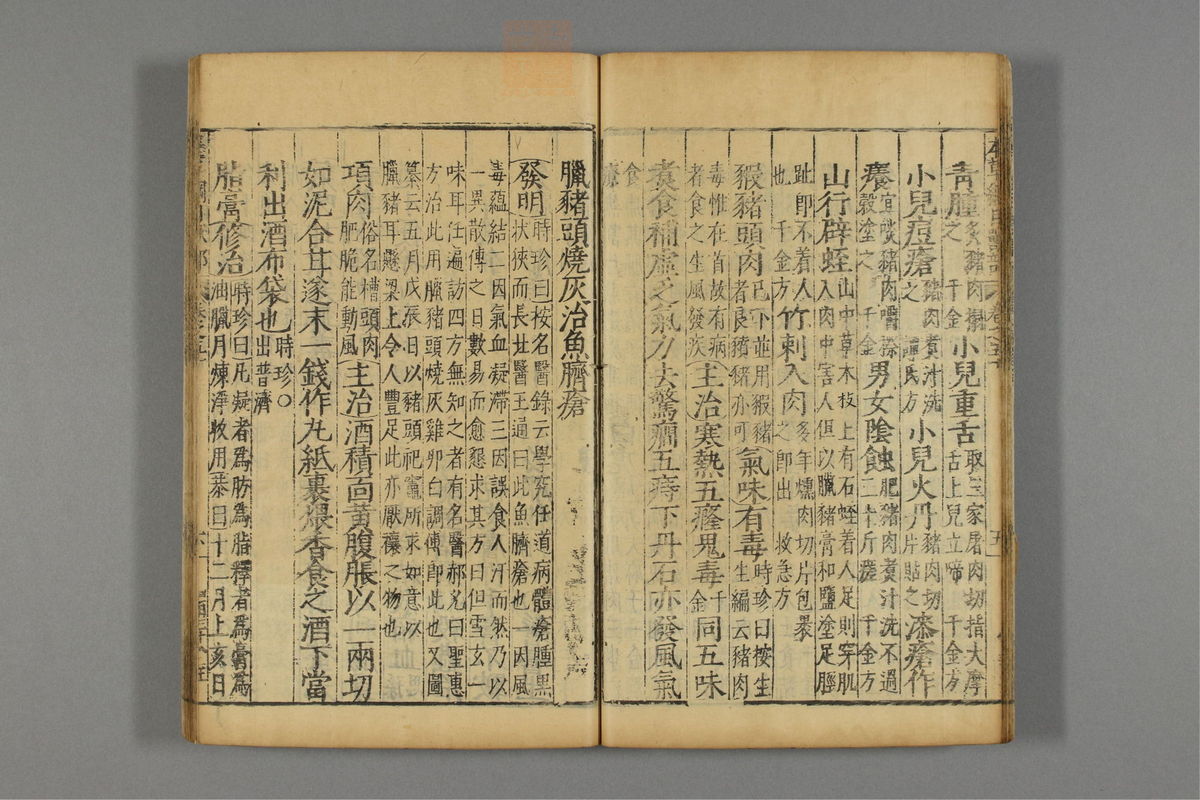 青腫炙豬肉搨之千金小兒重舌取三家屠肉切指大摩舌上兒立啼千金方
小兒痘瘡豬肉煮汁洗之譚氏方小兒火丹豬肉切片貼之漆瘡作
癢宜啖豬肉嚼穄穀塗之千金男女陰蝕肥豬肉煮汁洗不過二十斤瘥千金方
山行辟蛭山中草木枝上有石蛭着人足則穿肌入肉中害人但以臘豬膏和鹽塗足脛
趾即不着人也千金方竹刺入肉多年燻肉切片包裹之即出救急方
豭豬頭肉已下並用豭豬者良豶豬亦可氣味有毒時珍曰按生生編云豬肉
毒惟在首故有病者食之生風發疾主治寒熱五癃鬼毒千金同五味
煮食補虛乏氣力去驚癇五痔下丹石亦發風氣
食療
臘豬頭燒灰治魚臍瘡
發明時珍曰按名醫錄云學究任道病體瘡腫黑狀狹而長北醫王通曰此魚臍瘡也一因風
毒蘊結二因氣血凝滯三因誤食人汗而然乃以一異散傅之日數易而愈懇求其方曰但雪玄一
味耳任遍訪四方無知之者有名醫郝允曰聖惠方治此用臘豬頭燒灰雞卵白調傅即此也又圖
纂云五月戊辰日以豬頭祀竈所求如意以臘豬耳懸梁上令人豐足此亦厭禳之物也
項肉俗名槽頭肉肥脆能動風主治酒積面黃腹脹以一兩切
如泥合甘遂末一錢作丸紙裹煨香食之酒下當
利出酒布袋也時珍○出普濟
脂膏修治時珍曰凡凝者為肪為脂釋者為膏為油臘月煉淨收用恭曰十二月上亥日